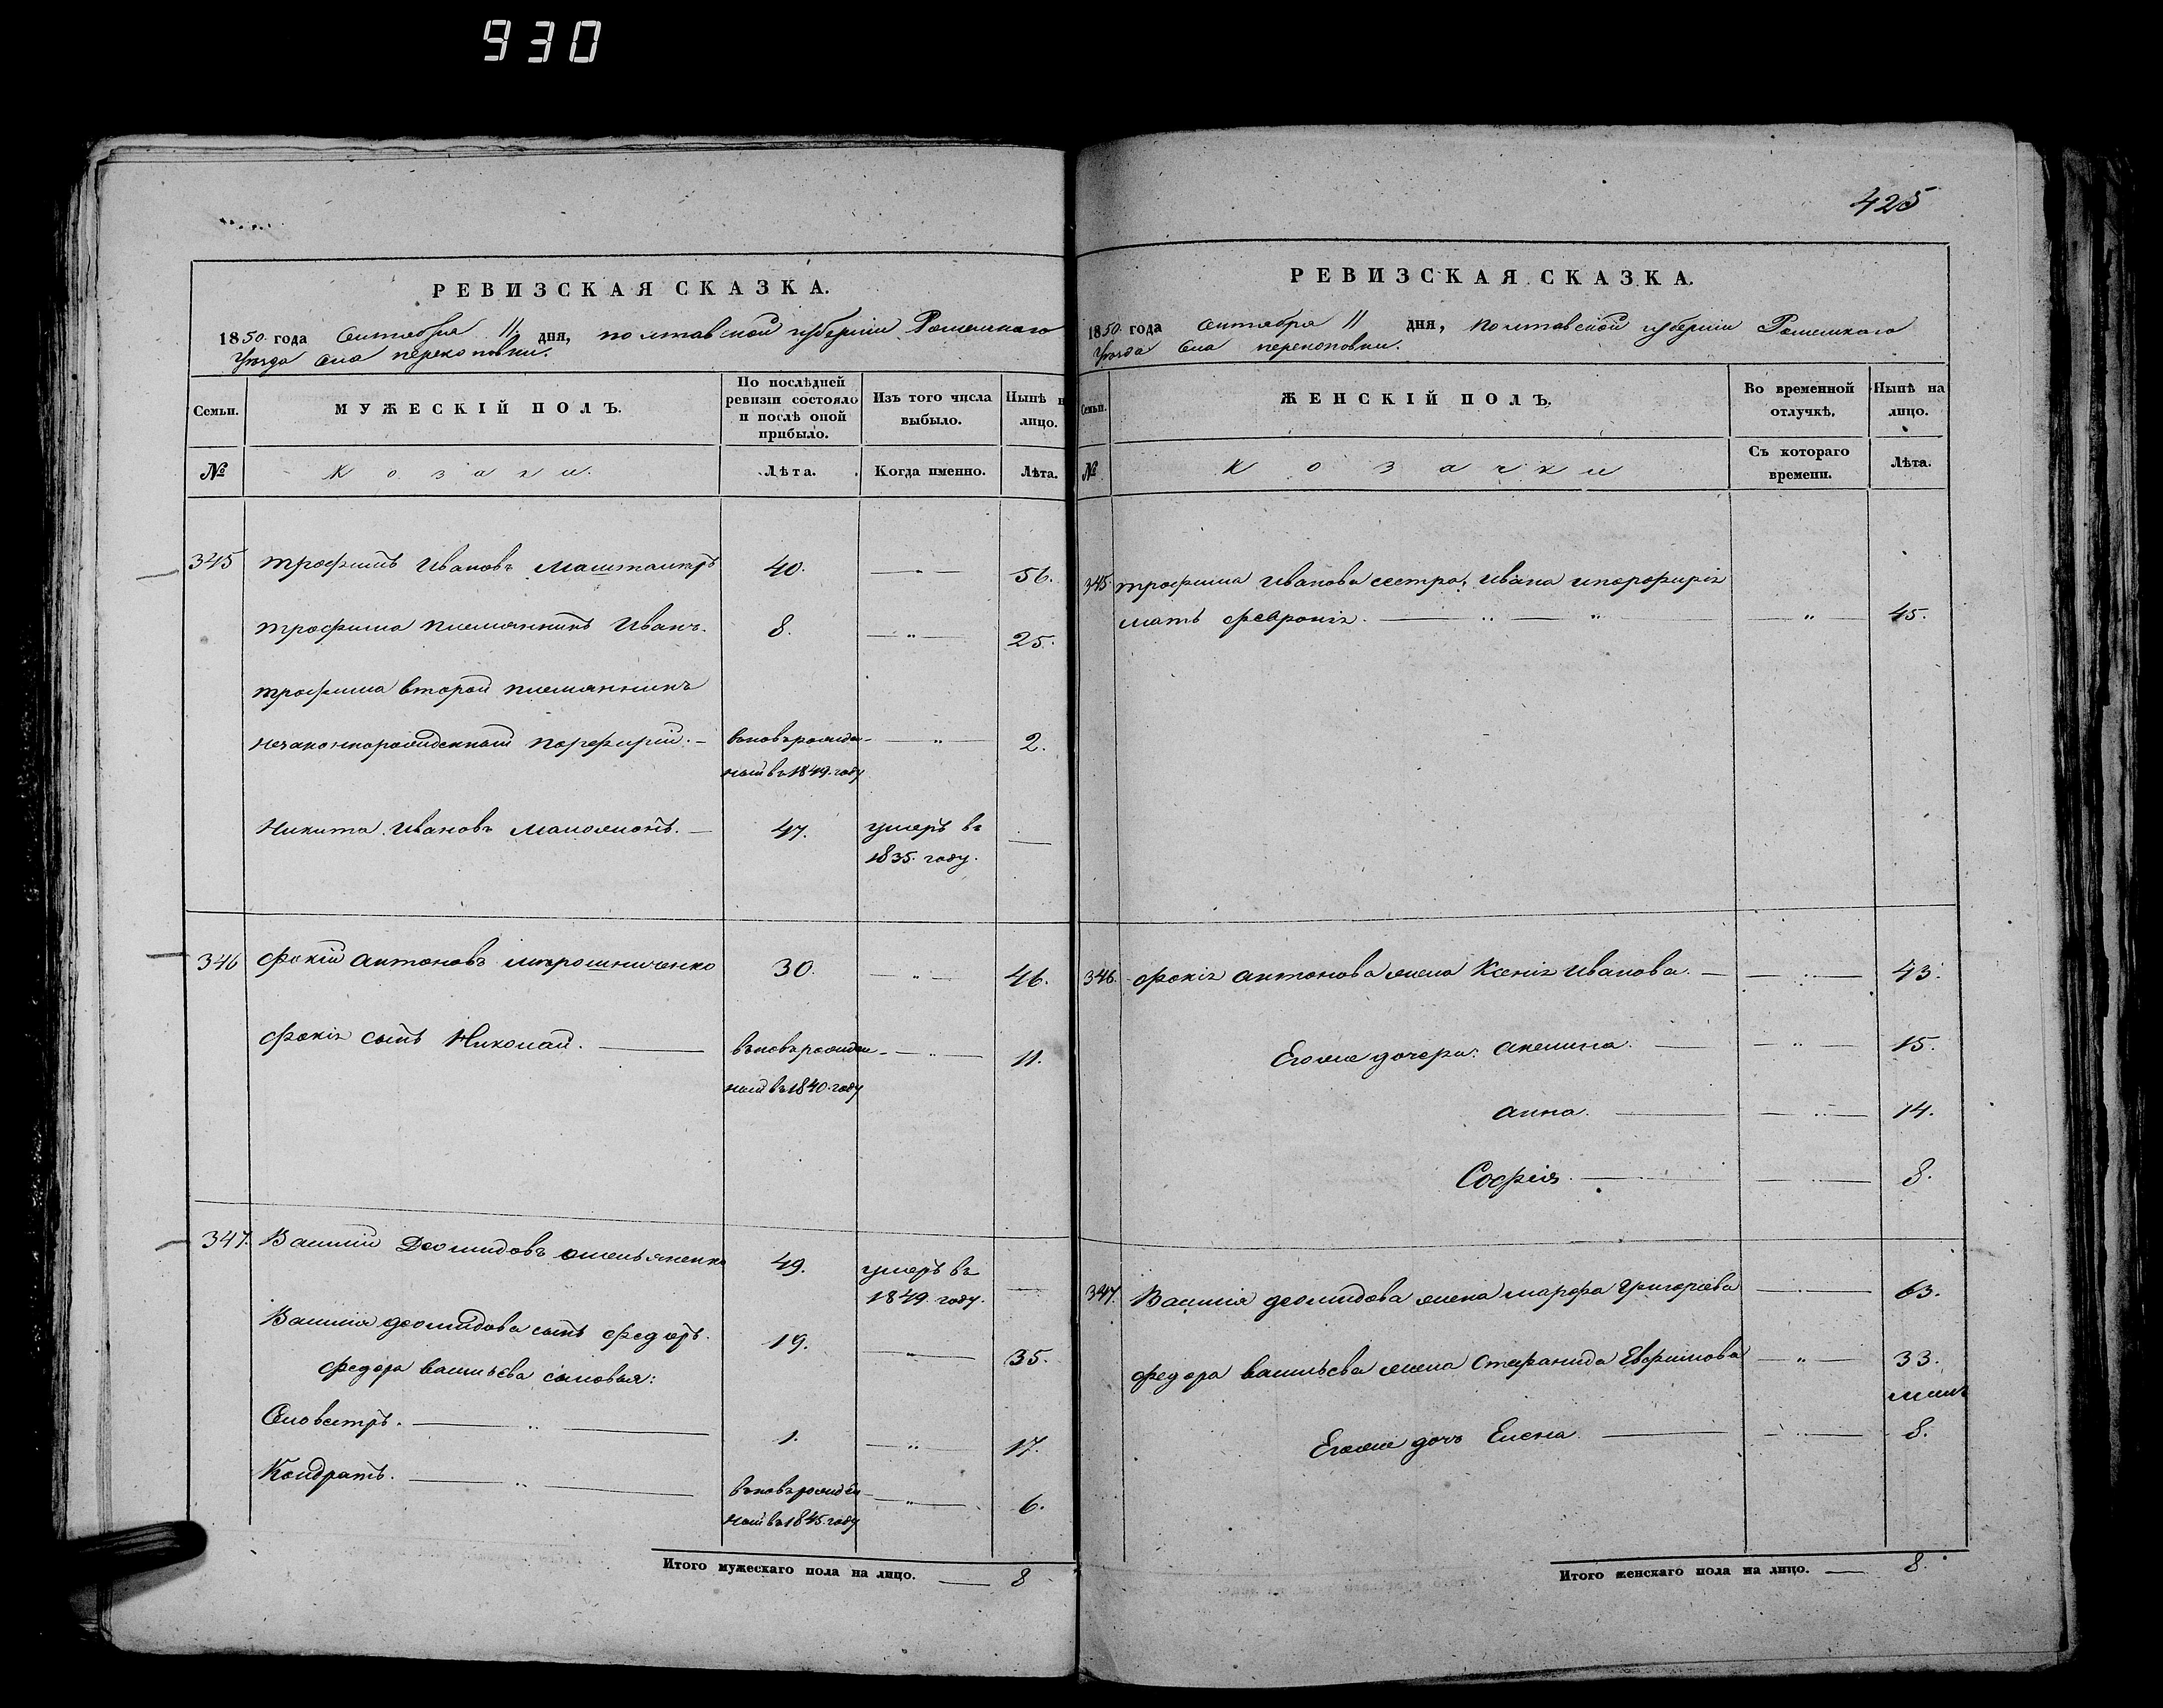 930
РЕВИЗСКАЯ СКАЗКА.
1850 года Сентября 11 дня, полтавской губерніи Роменскаго
Уѣзда села перекоповки.
Семьи.
МУЖЕСКІЙ ПОЛЪ.
По послѣдней
ревизіи состояло
и послѣ оной
прибыло.
Изъ того числа
выбыло.
Нынѣ н
лицо.
№
Козаки.
Лѣта.
Когда именно.
Лѣта.
345 трофимъ Ивановъ 40. 56.
трофима племянникъ Иванъ. 8. 25.
трофима второй племянникъ
незаконнорожденный Порфирій. вновьрожден- 2.
ный въ 1849. году
Никита Ивановъ 47. умеръ въ
1835. году.
346 Фокій Антоновъ мирошниченко 30. 46.
Фокія сынъ Николай. вновьрожден- 11.
ный въ 1840. году
347. Василій Деомидовъ омельяненко 49. умеръ въ
1849 году.
Василія деомидова сынъ Федоръ. 19. 35.
Федора васильева сыновья:
Силовестръ. 1. 17.
Кондратъ. вновьрожден- 6.
ный въ 1845. году
Итого мужескаго пола на лицо. 8
425
РЕВИЗСКАЯ СКАЗКА.
1850 года Сентября 11 дня, полтавской губерніи Роменскаго
Уѣзда села перекоповки.
Семьи.
ЖЕНСКІЙ ПОЛЪ.
Во временной
отлучкѣ.
Нынѣ на
лицо.
№
Козачки
Съ котораго
времени.
Лѣта.
345. трофима Иванова сестра, Ивана и порфирія
мать Февронія. 45.
346. Фокія Антонова жена Ксенія Иванова. 43.
Егоже дочери: Акилина. 15.
Анна. 14.
Софія. 8.
347. Василія деомидова жена марфа Григорьева 63.
Федора васильева жена Стефанида Евфимова 33.
Егоже дочь Елена. 8.
Итого женскаго пола на лицо. 8.